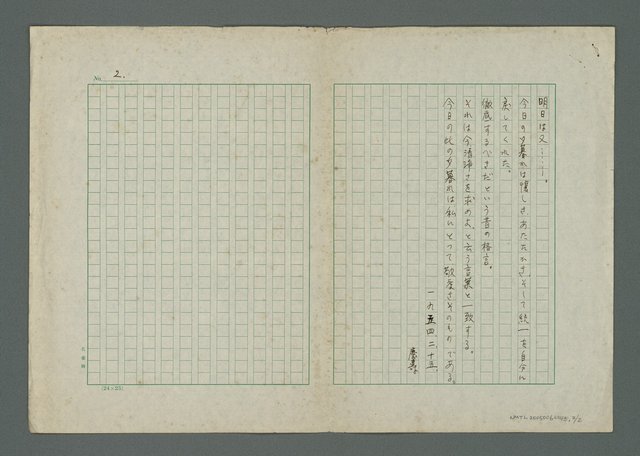 No. 2.
明日は又……。
今日の夕暮れは優しさ、あたたかさ、そして統一を自分に
戻してくれた。
徹底するべきだという昔の格言。
それは今清浄さを求めよ、と云う言葉と一致する。
今日の此の夕暮れは私にとって敬虔さそのものである。
一九五四 二、十五、
(24×25)